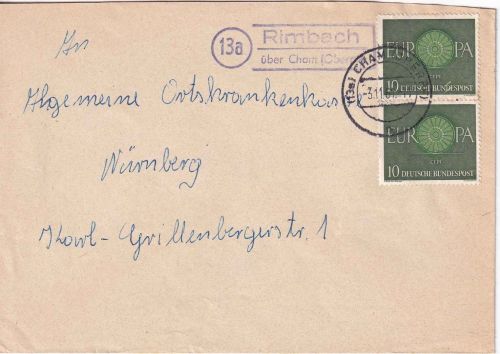 An
13a
Rimbach
über Cham (Oberpf
(13a) CHAM
-3.11.61
EUROPA
CEPT
10 DEUTSCHE BUNDESPOST
EUROPA
CEPT
10 DEUTSCHE BUNDESPOST
Allgemeine Ortskrankenkas
Nürnberg
Karl-Grillenbergerstr. 1